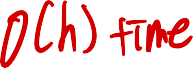 O(h) time